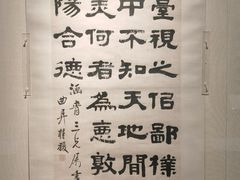 臺視之佀鄙樸
中不知天地間
何者為惠敦
陽合德
三兄屬書
曲阜桂馥